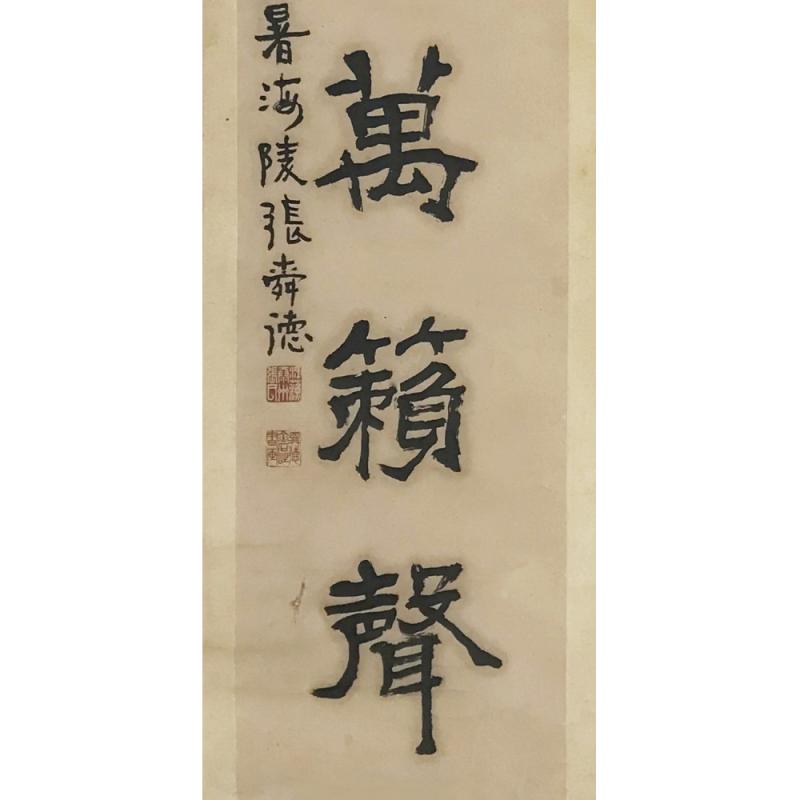 萬籟聲
暑海陵張舜德